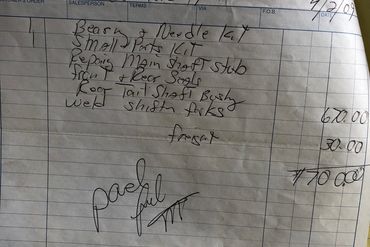 SALESPERSON TERMS VIA F.O.B.
DATE 9/2/09
1 Bearn & Nerdle Kit
Small Parts Kit
Repair Main Shaft Stub
Front & Rear Seals
Rear Tail Shaft Bushg
Weld shiftn forks 670.00
freight 30.00
700.00
paid